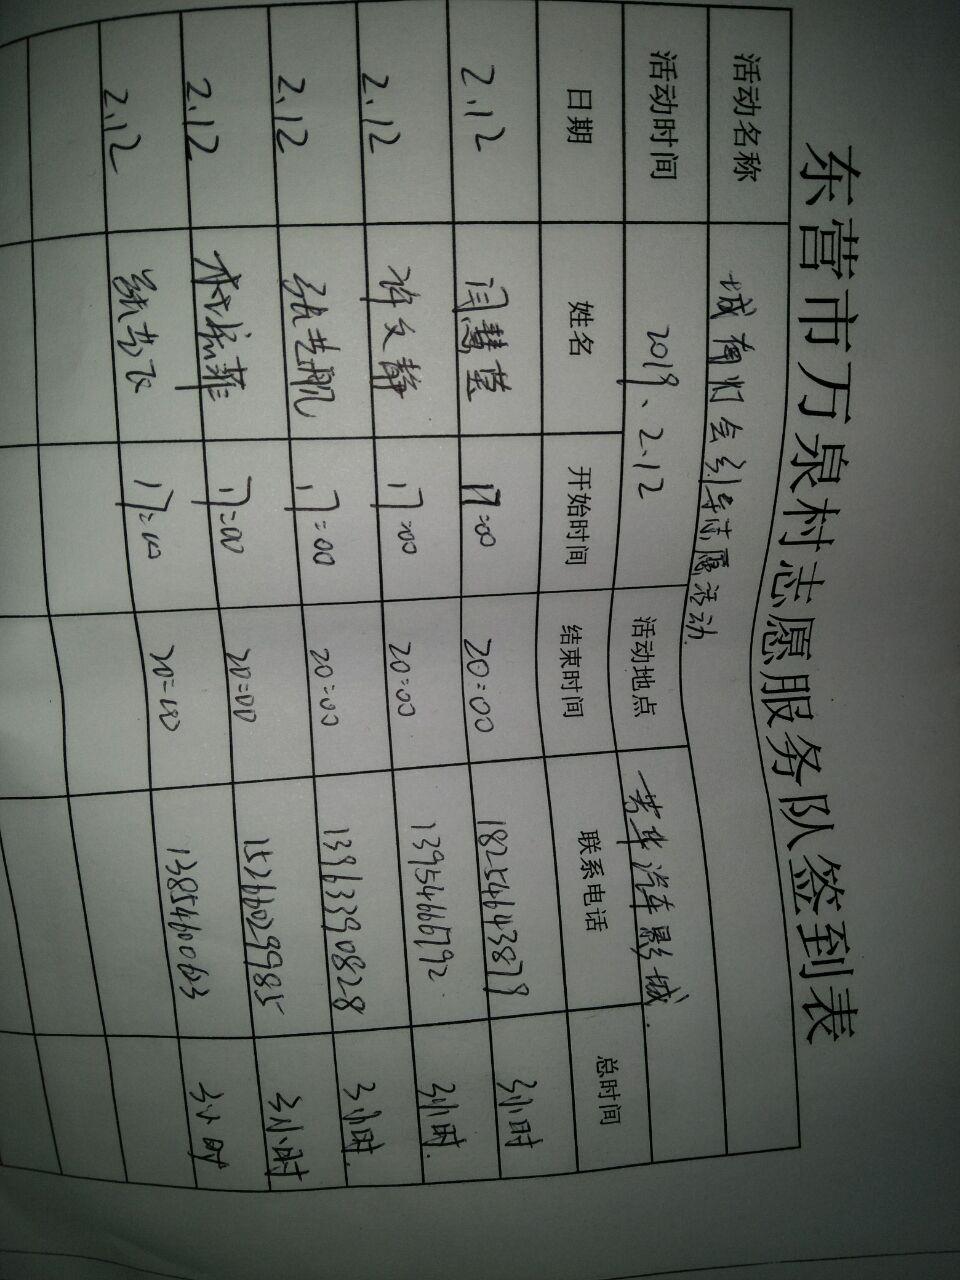 东营市万泉村志愿服务队签到表
活动名称 城南灯会引导志愿活动.
活动时间 2019、2.12 活动地点 芳华汽车影城.
日期 姓名 开始时间 结束时间 联系电话 总时间
2.12 闫慧莹 17:00 20:00 18254643878 3小时
2.12 许文静 17:00 20:00 3小时.
2.12 张艺凡 17:00 20:00 13963390828 3小时.
2.12 17:00 20:00 15266029985 3小时
2.12 17:00 20:00 13854600603 3小时